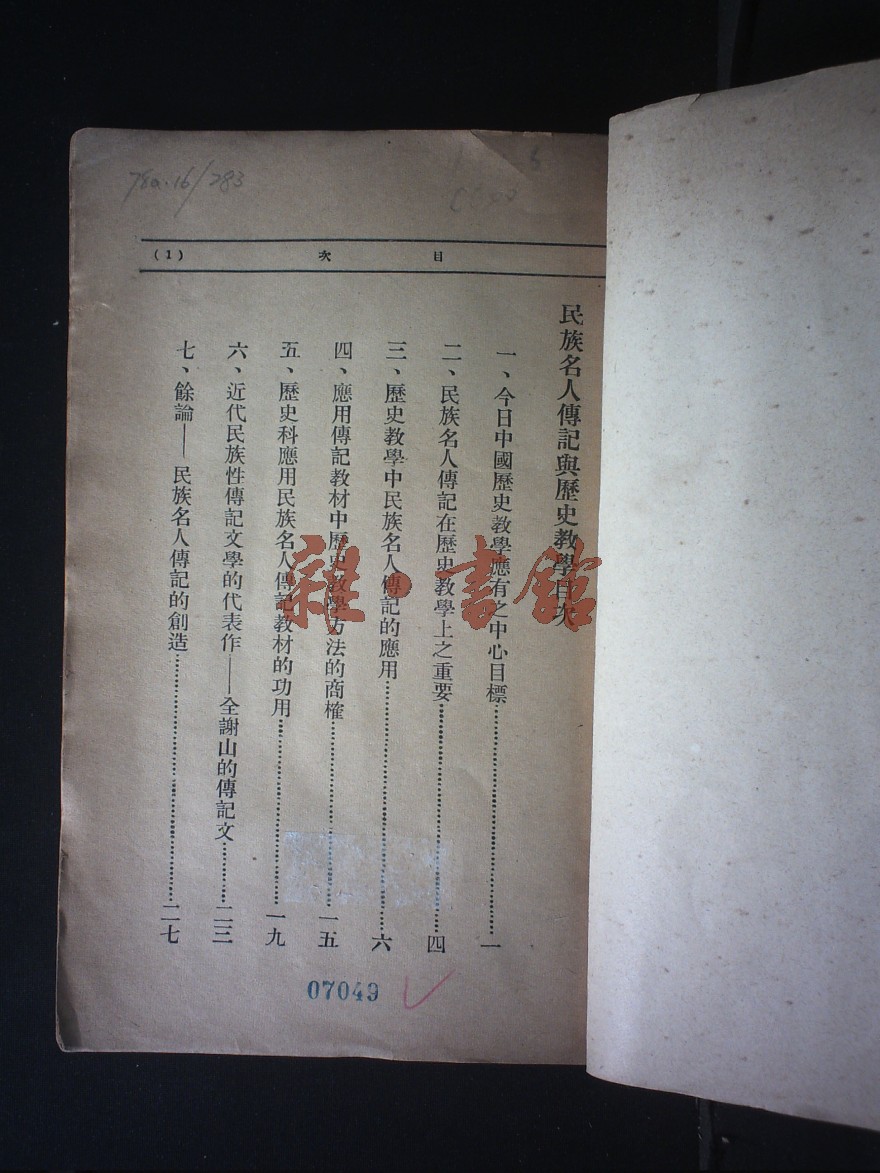 78a.16/283
目次 (1)
民族名人傳記與歷史教學目次
一、今日中國歷史教學應有之中心目標……一
二、民族名人傳記在歷史教學上之重要……四
三、歷史教學中民族名人傳記的應用……六
四、應用傳記教材中歷史教學方法的商榷……一五
五、歷史科應用民族名人傳記教材的功用……一九
六、近代民族性傳記文學的代表作——全謝山的傳記文……二三
七、餘論——民族名人傳記的創造……二七
雜·書館
07049